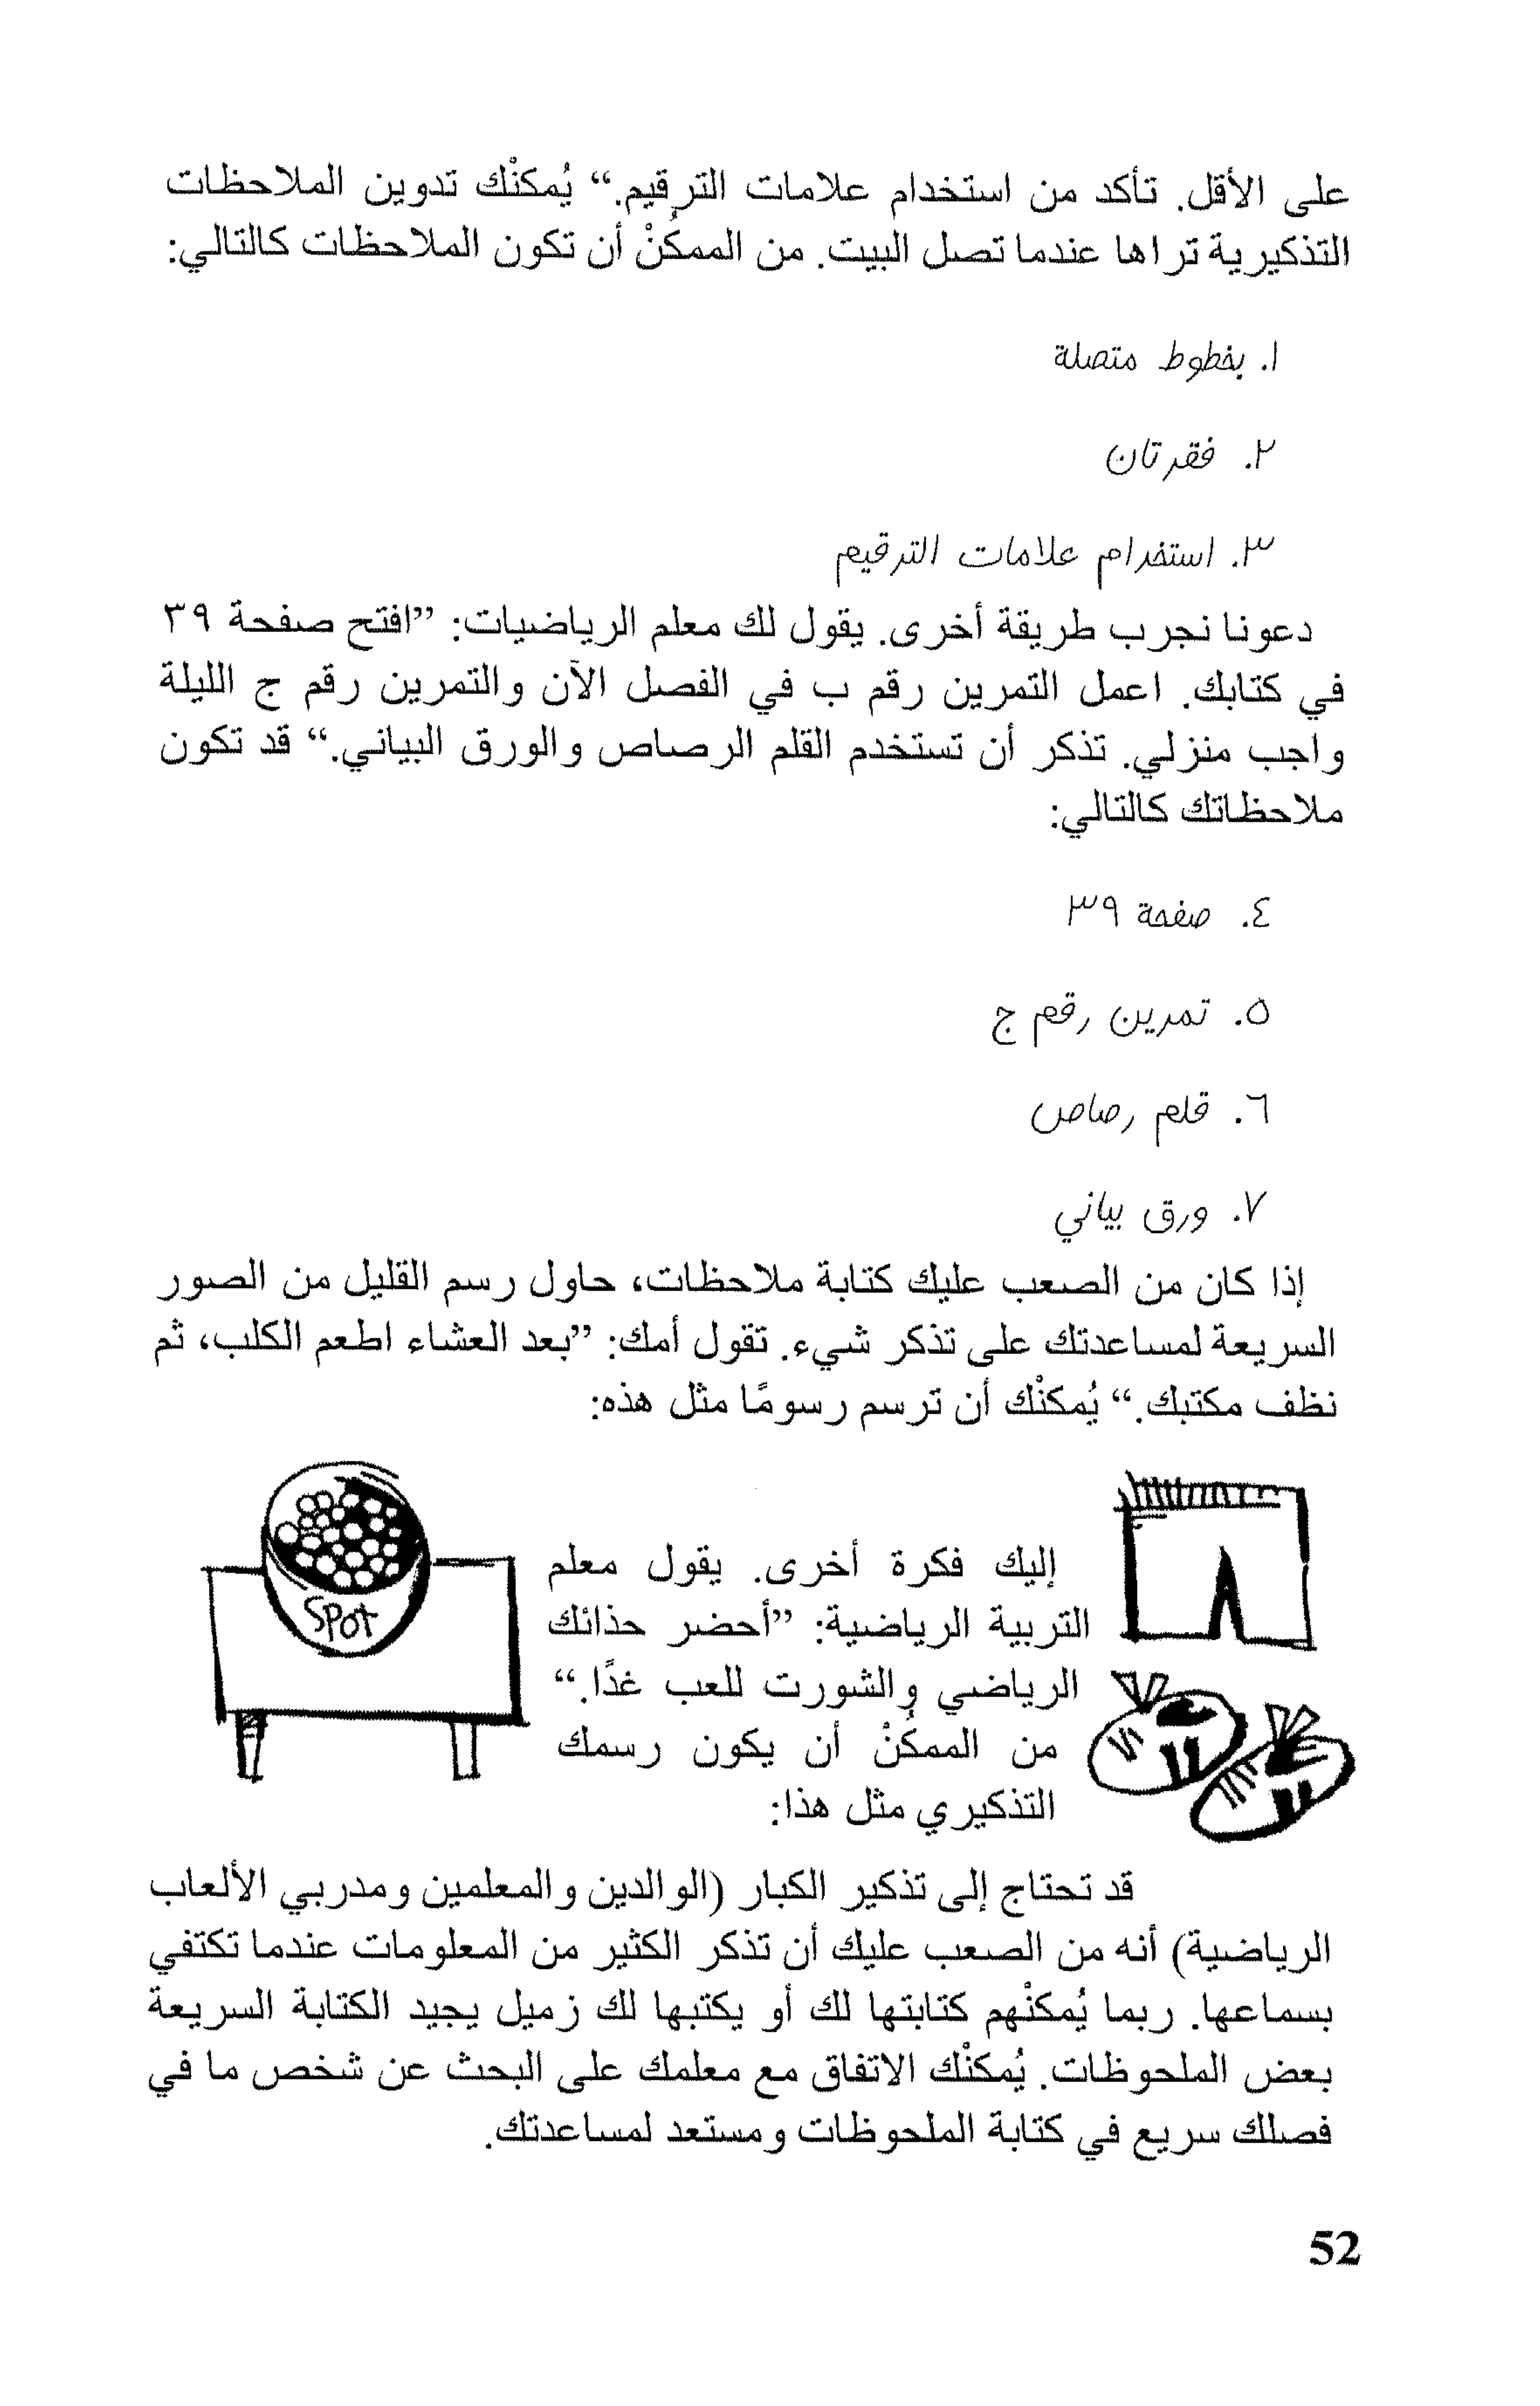 على الأقل. تأكد من استخدام علامات الترقيم.“ يُمكنْك تدوين الملاحظات
التذكيرية تراها عندما تصل البيت. من الممكُنْ أن تكون الملاحظات كالتالي:
١. بخطوط متصلة
٢. فقرتان
٣. استخدام علامات الترقيم
دعونا نجرب طريقة أخرى. يقول لك معلم الرياضيات: ”افتح صفحة ٣٩
في كتابك. اعمل التمرين رقم ب في الفصل الآن والتمرين رقم ج الليلة
واجب منزلي. تذكر أن تستخدم القلم الرصاص والورق البياني.“ قد تكون
ملاحظاتك كالتالي:
٤. صفحة ٣٩
٥. تمرين رقم ج
٦. قلم رصاص
٧. ورق بياني
إذا كان من الصعب عليك كتابة ملاحظات، حاول رسم القليل من الصور
السريعة لمساعدتك على تذكر شيء. تقول أمك: ”بعد العشاء اطعم الكلب، ثم
نظف مكتبك.“ يُمكنْك أن ترسم رسومًا مثل هذه:
SPot
إليك فكرة أخرى. يقول معلم
التربية الرياضية: ”أحضر حذائك
الرياضي والشورت للعب غدًا.“
من الممكُنْ أن يكون رسمك
التذكيري مثل هذا:
قد تحتاج إلى تذكير الكبار (الوالدين والمعلمين ومدربي الألعاب
الرياضية) أنه من الصعب عليك أن تذكر الكثير من المعلومات عندما تكتفي
بسماعها. ربما يُمكنْهم كتابتها لك أو يكتبها لك زميل يجيد الكتابة السريعة
بعض الملحوظات. يُمكنْك الاتفاق مع معلمك على البحث عن شخص ما في
فصلك سريع في كتابة الملحوظات ومستعد لمساعدتك.
52